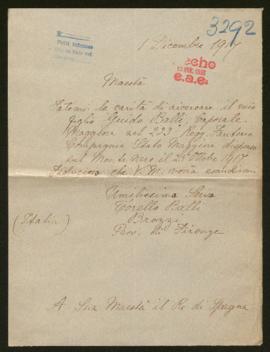 3292
1 Dicembre 1917
hecho
e.a.e.
Maestà
la carità di ricercare il mio
figlio Guido Balli, Caporale
Maggiore nel 223 Regg. Fanteria
Compagnia Stato Maggiore disperso
sul Monte Nero il 25 Ottobre 1917
Fiduciosa che V. M. vorrà
Umilissima Serva
Torello Balli
Brozzi
Prov. di Firenze
(Italia)
A Sua Maestà il Re di Spagna